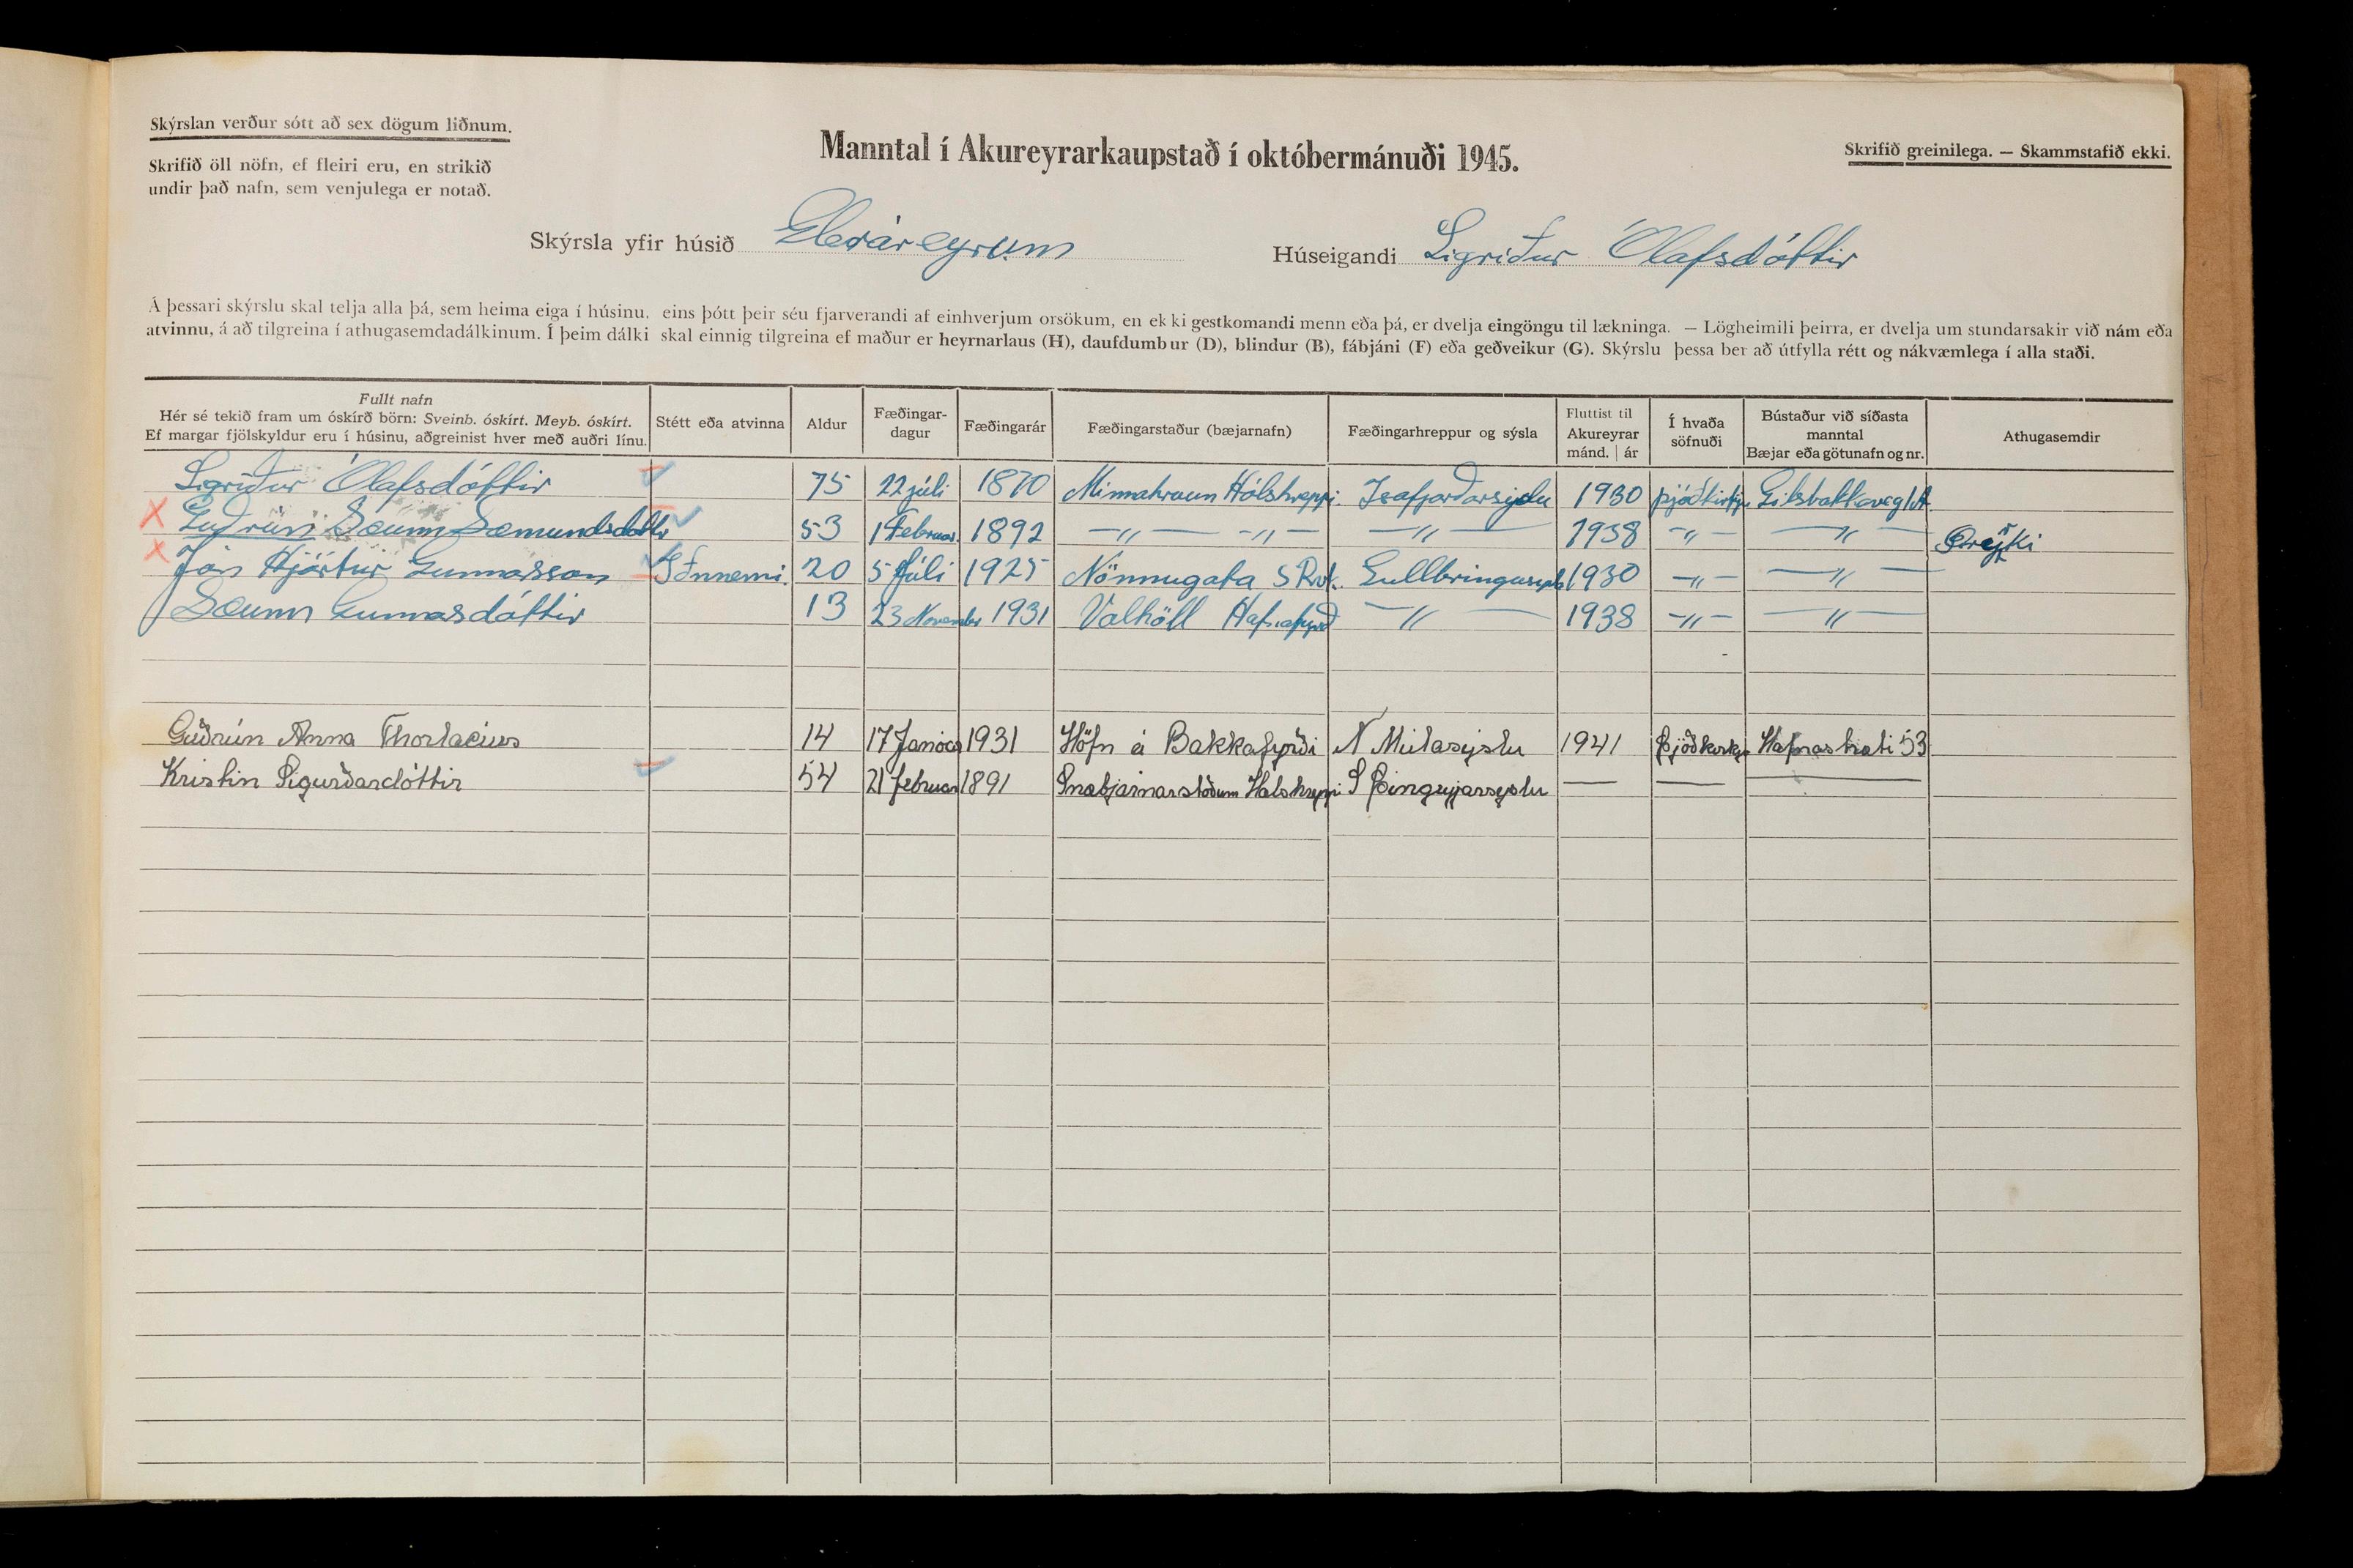 Skýrslan verður sótt að sex dögum liðnum.
Skrifið öll nöfn, ef fleiri eru, en strikið
undir það nafn, sem venjulega er notað.
Manntal í Akureyrarkaupstað í októbermánuði 1945.
Skrifið greinilega. — Skammstafið ekki.
Skýrsla yfir húsið Gleráreyrum
Húseigandi Sigríður Ólafsdóttir
Á þessari skýrslu skal telja alla þá, sem heima eiga í húsinu, eins þótt þeir séu fjarverandi af einhverjum orsökum, en ekki gestkomandi menn eða þá, er dvelja eingöngu til lækninga. — Lögheimili þeirra, er dvelja um stundarsakir við nám eða
atvinnu, á að tilgreina í athugasemdadálkinum. Í þeim dálki skal einnig tilgreina ef maður er heyrnarlaus (H), daufdumbur (D), blindur (B), fábjáni (F) eða geðveikur (G). Skýrslu þessa ber að útfylla rétt og nákvæmlega í alla staði.
Fullt nafn
Hér sé tekið fram um óskírð börn: Sveinb. óskírt. Meyb. óskírt.
Ef margar fjölskyldur eru í húsinu, aðgreinist hver með auðri línu.
Stétt eða atvinna
Aldur
Fæðingar-
dagur
Fæðingarár
Fæðingarstaður (bæjarnafn)
Fæðingarhreppur og sýsla
Fluttist til
Akureyrar
mánd. | ár
Í hvaða
söfnuði
Bústaður við síðasta
manntal
Bæjar eða götunafn og nr.
Athugasemdir
Sigríður Ólafsdóttir 75 22 júli 1870 Minnahraun Hólshreppi. Isafjarðarsyslu 1930 þjóðkirkju Gilsbakkaveg 1A
Guðrún Sæunn Sæmundsdóttir 53 1 Februar 1892 —〃— —〃— —〃— 1938 —〃— —〃—
Jón Hjörtur Gunnarsson 20 5 Júli 1925 Nönnugata 5 Rvk. Gullbringusysla 1930 —〃— —〃—
Sæunn Gunnarsdóttir 13 23 November 1931 Valhöll Hafnafyrð —〃— 1938 —〃— —〃—
Guðrún Anna Thorlacius 14 17 Janúar 1931 Höfn á Bakkafyrði N Múlasyslu 1941 Þjóðkirkju Hafnastræti 53
Kristin Sigurðardóttir 54 21 februar 1891 Snæbjarnarstöðum Halshreppi S Þingeyjarsyslu — — —